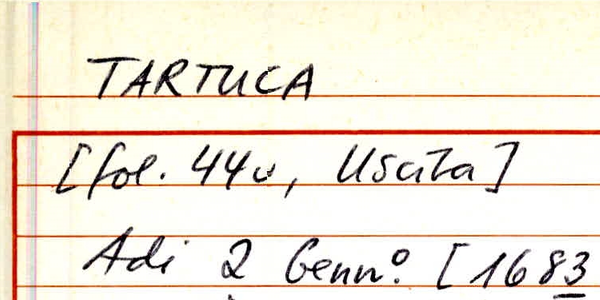 TARTUCA
[fol. 44v, Uscita]
Adi 2 Genn.º [1683